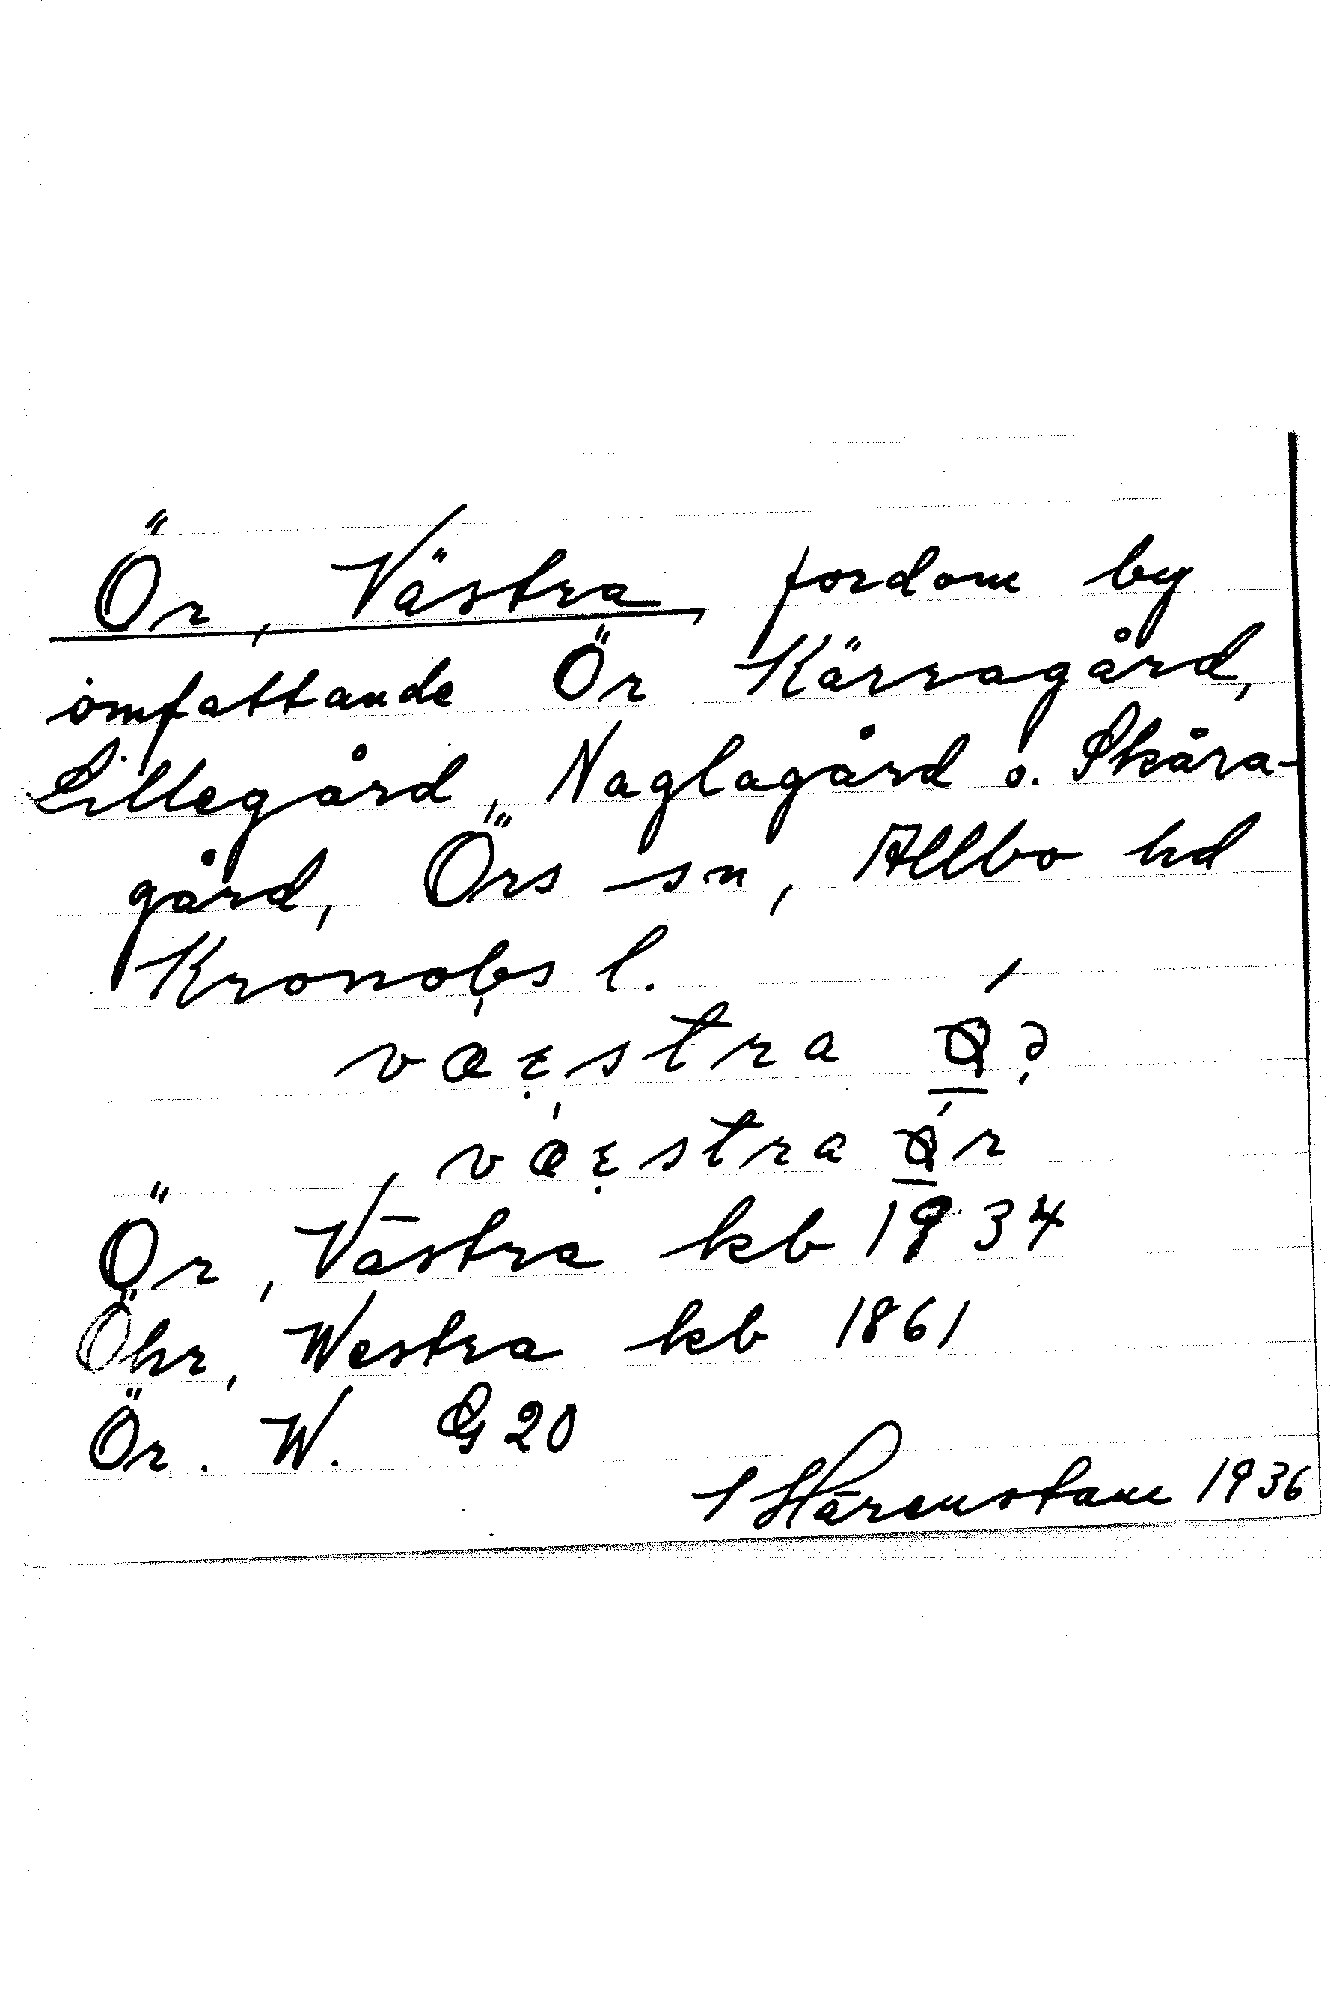 Ör, Västra, fordom by
omfattande Ör Kärragård,
Lillegård, Naglagård o. Skåra-
gård, Örs sn, Allbo hd
Kronobs l.
västra
västra
Ör, Västra kb 1934
Öhr, Westra kb 1861
Ör. W. G 20
Härenstam 1936